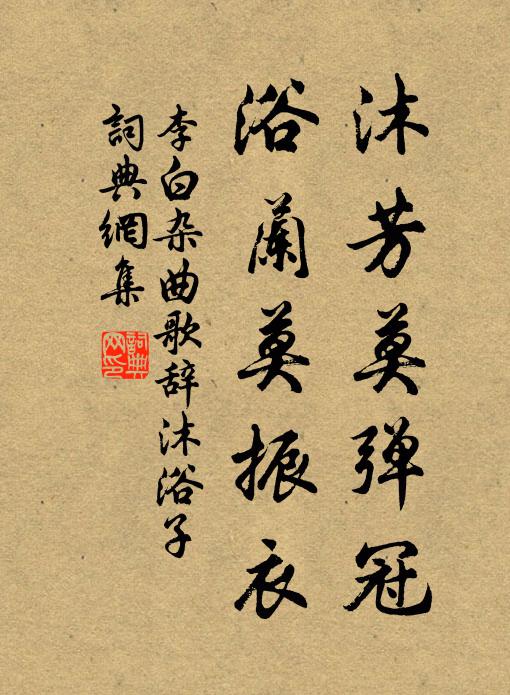 沐芳莫弹冠
浴蘭莫振衣
李白杂曲歌辞沐浴子
詞典網集
詞典网印